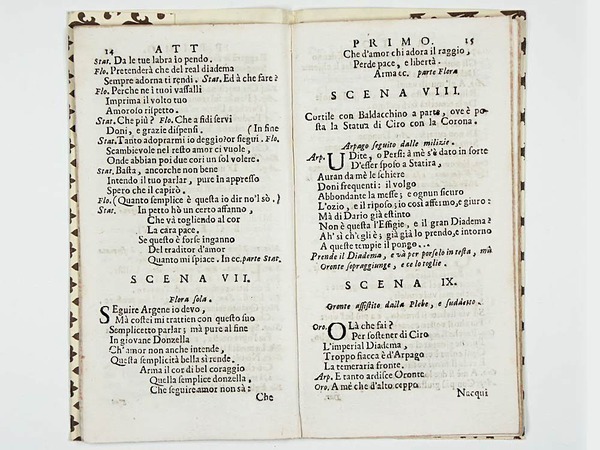 14 ATT
Stat. Da le tue labra io pendo.
Flo. Pretenderà che del real diadema
Sempre adorna ti rendi. Stat. Ed à che fare?
Flo. Perche ne i tuoi vassalli
Imprima il volto tuo
Amoroso rispetto.
Stat. Che più? Flo. Che a fidi servi
Doni, e grazie dispensi. (In fine
Stat. Tanto adoprarmi io deggio?or siegui. Flo.
Scambievole nel resto amor ci vuole,
Onde abbian poi due cori un sol volere.
Stat. Basta, ancorche non bene
Intendo il tuo parlar, pure in appresso
Spero che il capirò.
Flo. (Quanto semplice è questa io dir no'l sò.)
Stat. In petto hò un certo affanno,
Che và togliendo al cor
La cara pace.
Se questo è forse inganno
Del traditor d'amor
Quanto mi spiace. In ec. parte Stat.
SCENA VII.
Flora sola.
SEguire Argene io devo,
Mà costei mi trattien con questo suo
Semplicetto parlar; mà pure al fine
In giovane Donzella
Ch' amor non anche intende,
Questa semplicità bella si rende.
Arma il cor di bel coraggio
Quella semplice donzella,
Che seguire amor non sà:
Che
PRIMO. 15
Che d'amor chi adora il raggio,
Perde pace, e libertà.
Arma ec. parte Flora
SCENA VIII.
Cortile con Baldacchino a parte, ove è po-
sta la Statua di Ciro con la Corona.
Arpago seguito dalle milizie.
Arp. UDite, o Persi: à mè s'è dato in sorte
D'esser sposo a Statira,
Auran da mè le schiere
Doni frequenti: il volgo
Abbondante la messe; e ognun sicuro
L'ozio, e il riposo; io così affermo, e giuro:
Mà di Dario già estinto
Non è questa l'Effigie, e il gran Diadema?
Ah' sì ch'egli è; già già lo prendo, e intorno
A queste tempie il pongo...
Prende il Diadema, e và per porselo in testa, mà
Oronte sopraggiunge, e ce lo toglie.
SCENA IX.
Oronte assistito dalla Plebe, e suddetto.
Oro. OLà che fai?
Per sostener di Ciro
L'imperial Diadema,
Troppo fiacca è d'Arpago
La temeraria fronte.
Arp. E tanto ardisce Oronte
Oro. A mè che d'alto ceppo
Nacqui